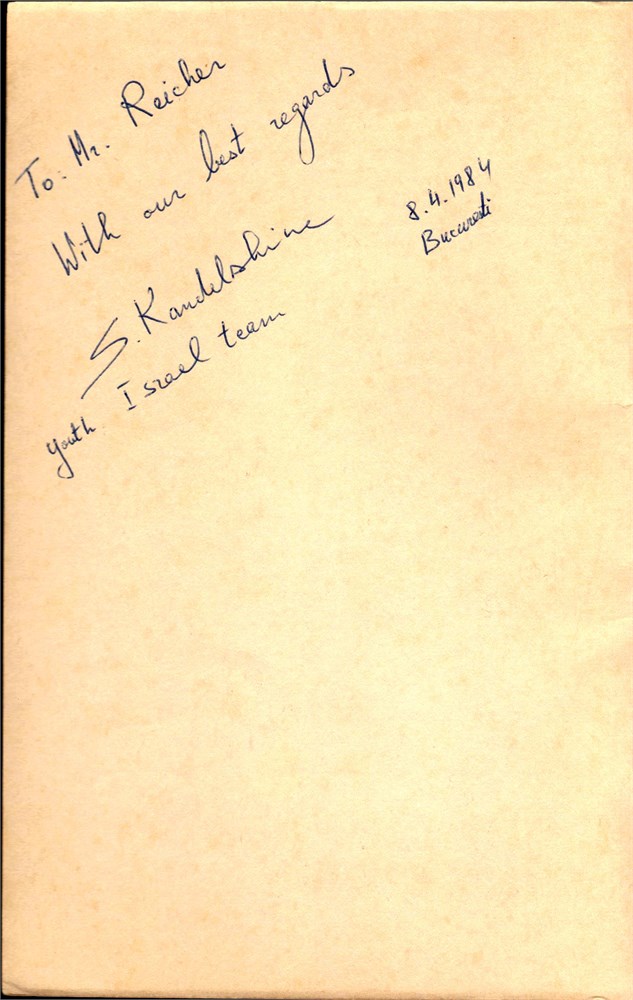 To: Mr. Reicher
With our best regards
S. Kandelshine
Youth Israel team
8.4.1984
Bucuresti